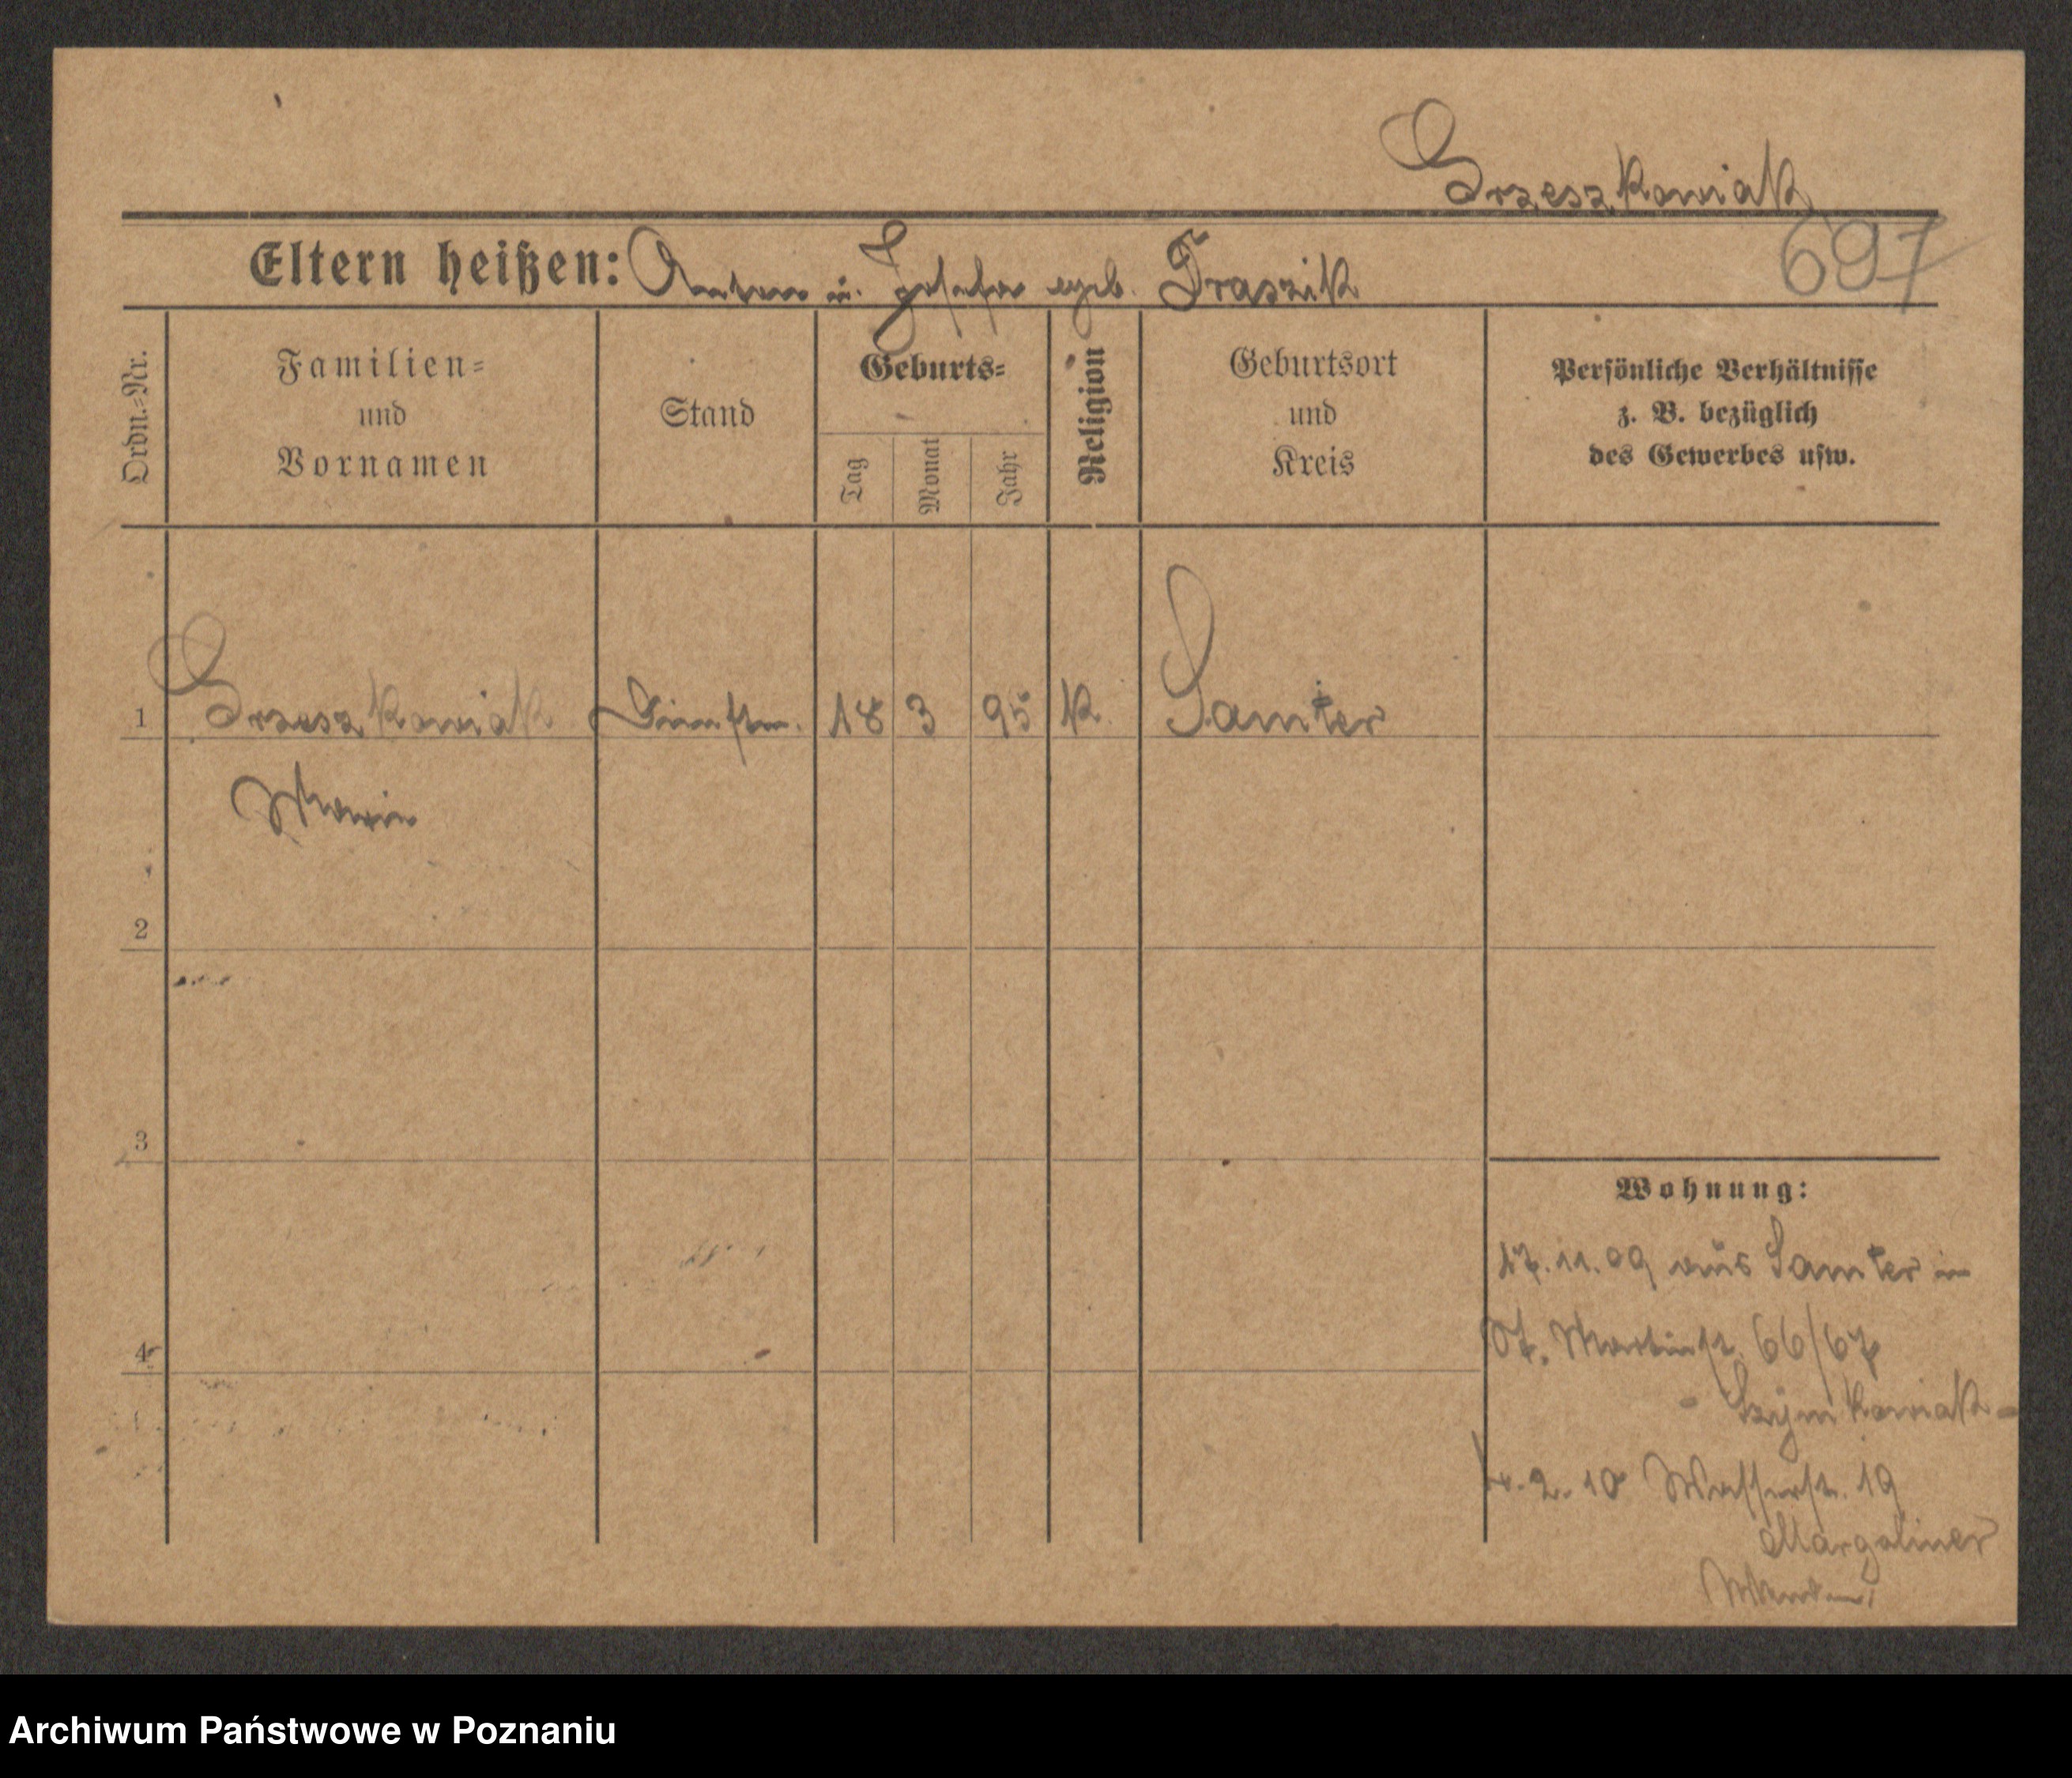 Grzeszkowiak
697
Eltern heißen: Anton u. Josefa geb. Fraszik
Ordn.-Nr.
Familien-
und
Vornamen
Stand
Geburts-
Tag
Monat
Jahr
Religion
Geburtsort
und
Kreis
Persönliche Verhältnisse
z. B. bezüglich
des Gewerbes usw.
1 Grzeszkowiak Dienstm. 18 3 95 K. Samter
Marie
2
3
4
Wohnung:
17.11.09 aus Samter in
St. Martinstr. 66/67
- Szymkowiak -
4.2.10 Wasserstr. 19
Margoliner
Archiwum Państwowe w Poznaniu